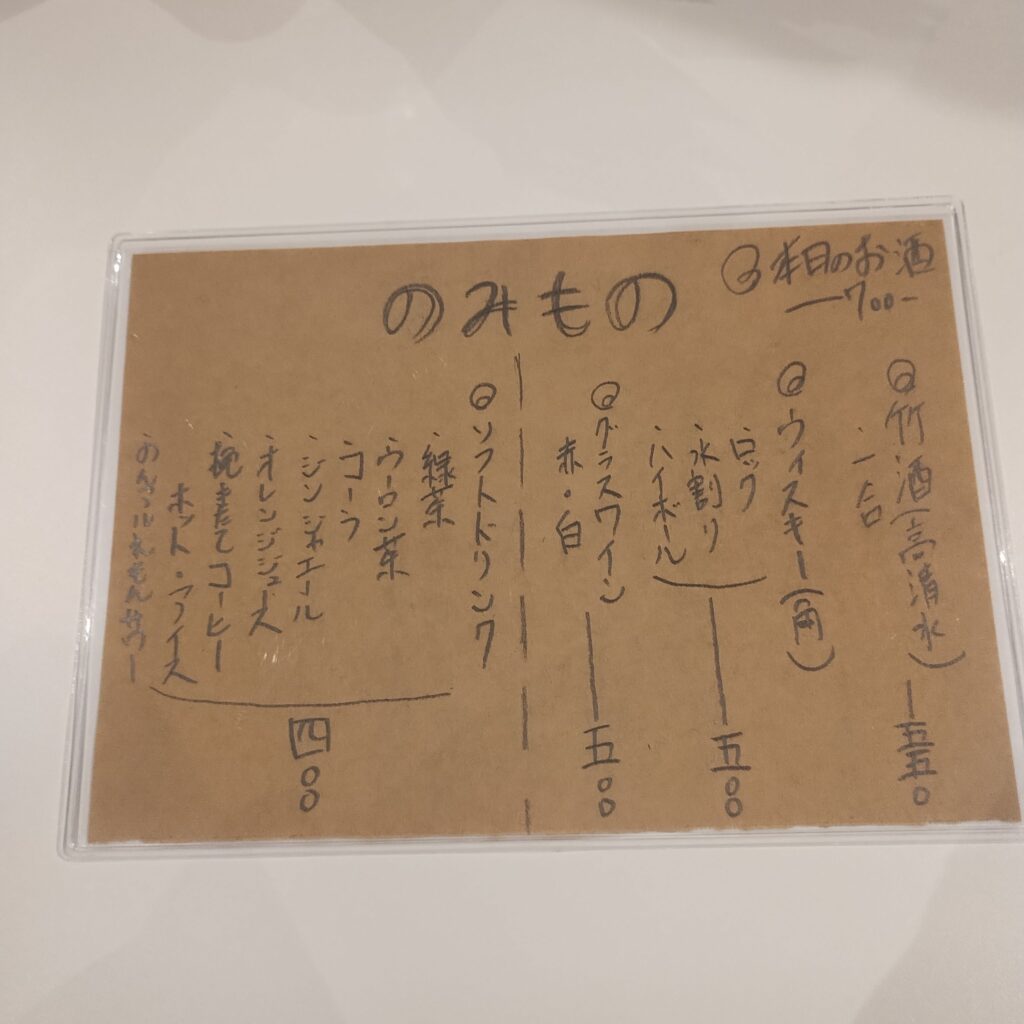 のみもの
◎本日のお酒
―700-
◎竹酒(高清水)―五五〇
・一合
◎ウィスキー(角)
・ロック
・水割り
・ハイボール
―五〇〇
◎グラスワイン―五〇〇
赤・白
◎ソフトドリンク
・緑茶
・ウーロン茶
・コーラ
・ジンジャエール
・オレンジジュース
・挽きたてコーヒー
ホット・アイス
・のんアルれもんサワー
四〇〇